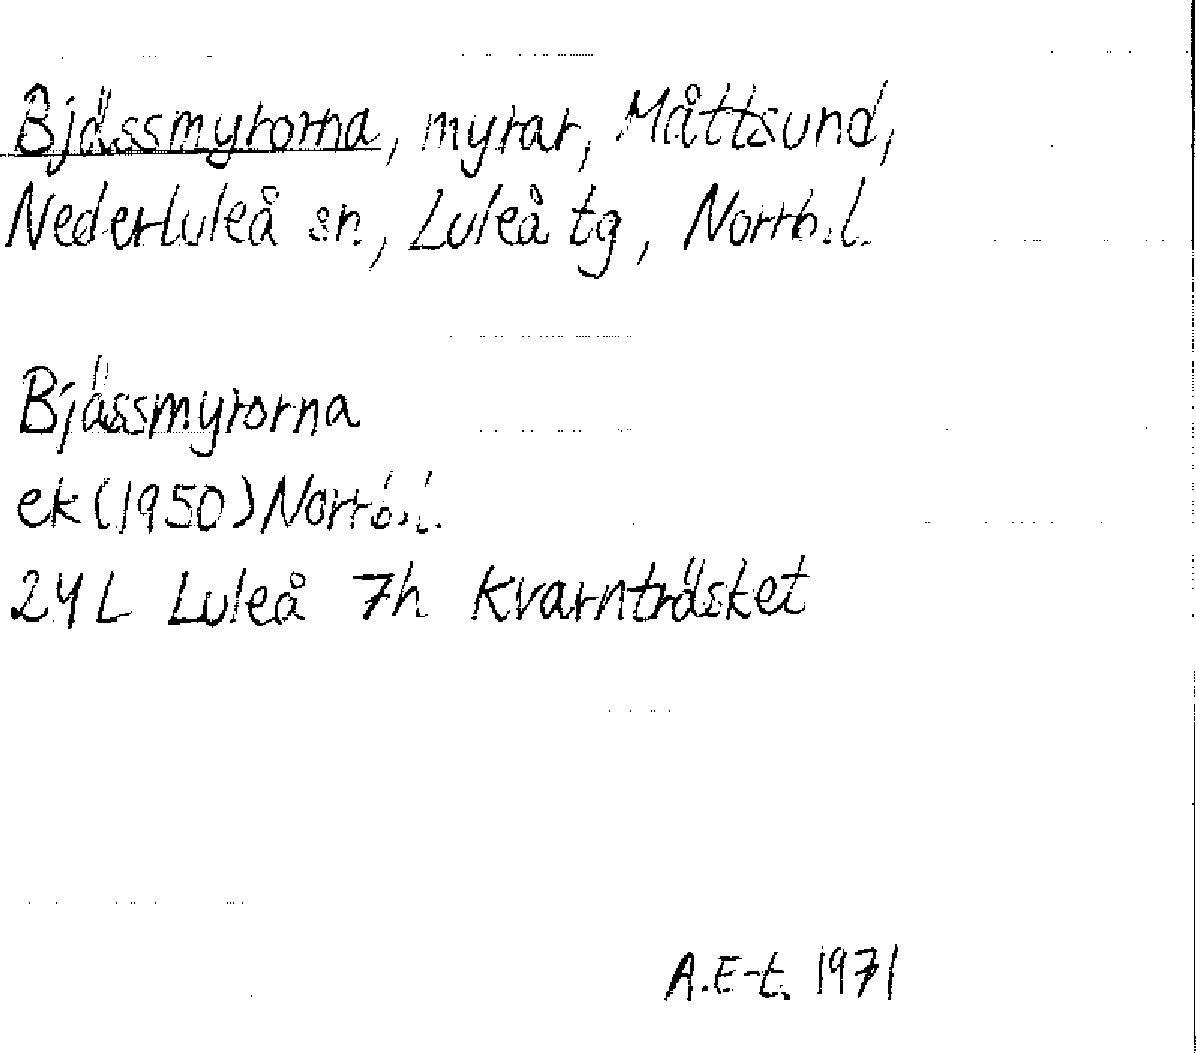 Bjässmyrorna, myrar, Måttsund,
Nederluleå sn, Luleå tg, Norrb.l.
Bjässmyrorna
ek (1950) Norrb.l.
24L Luleå 7h Kvarnträsket
A.E-t. 1971